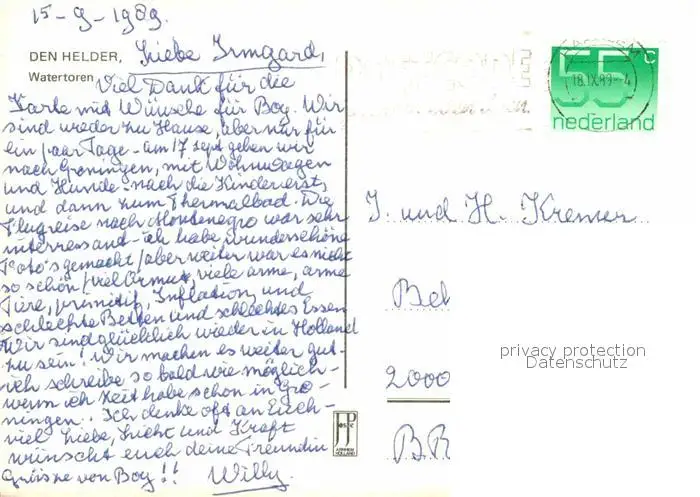 15-9-1989.
DEN HELDER, Liebe Irmgard,
Watertoren Viel Dank für die
Karte mit Wünsche für Boy. Wir
sind wieder zu Hause, aber nur für
ein paar Tage - am 17 sept gehen wir
nach Groningen, mit Wohnwagen
und Hunde - nach die Kinder erst,
und dann zum Thermalbad. Die
Flugreise nach Montenegro war sehr
interressant - ich habe wunderschöne
Foto's gemacht, aber weiter war es nicht
so schön, viel Armut, viele arme, arme
Tiere, primitif, Inflation, und
schlechte Betten und schlechtes Essen
Wir sind glücklich wieder in Holland
zu sein! Wir machen es weiter gut -
ich schreibe so bald wie möglich -
wenn ich Zeit habe schon in Gro-
ningen. Ich denke oft an Euch -
viel Liebe, Licht und Kraft
wünscht euch deine Freundin
Grüsse von Boy!! Willy.
55 c
nederland
18.IX.89-4
I. und H. Kremer
Bel
2000
B.R
privacy protection
Datenschutz
JosPé
ARNHEM
HOLLAND